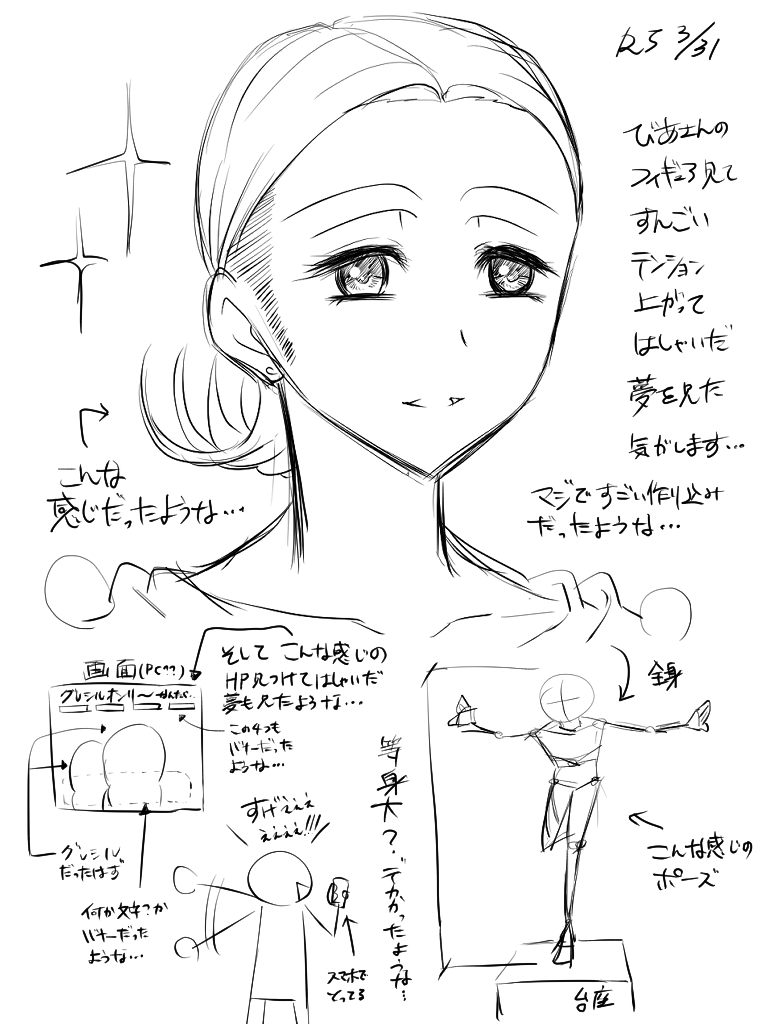 R5 3/31
びあさんの
フィギュア見て
すんごい
テンション
上がって
はしゃいだ
夢を見た
気がします…
マジですごい作り込み
だったような…
こんな
感じだったような…
全身
そして こんな感じの
HP見つけてはしゃいだ
夢も見たような…
画面(PC??)
グレシルオンリー なんたら…
この4つも
バナーだった
ような…
グレシル
だったはず
何か文字?が
バナーだった
ような…
すげぇぇぇ
ぇぇぇぇ!!!
スマホで
とってる
等身大?でかかったような…
こんな感じの
ポーズ
台座